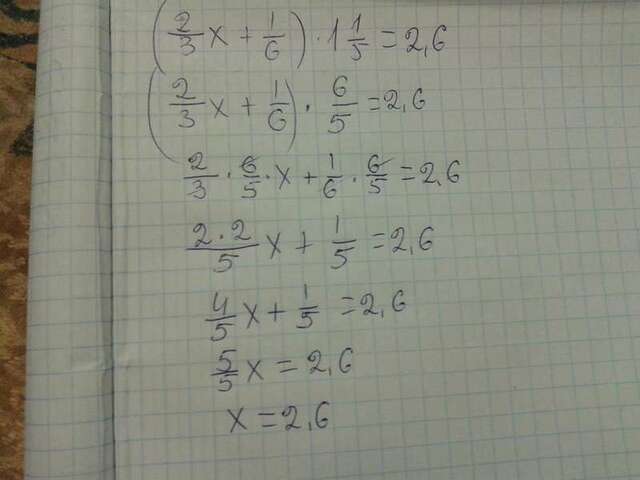 (2/3 x + 1/6) · 1 1/5 = 2,6
(2/3 x + 1/6) · 6/5 = 2,6
2/3 · 6/5 · x + 1/6 · 6/5 = 2,6
2·2/5 x + 1/5 = 2,6
4/5 x + 1/5 = 2,6
5/5 x = 2,6
x = 2,6